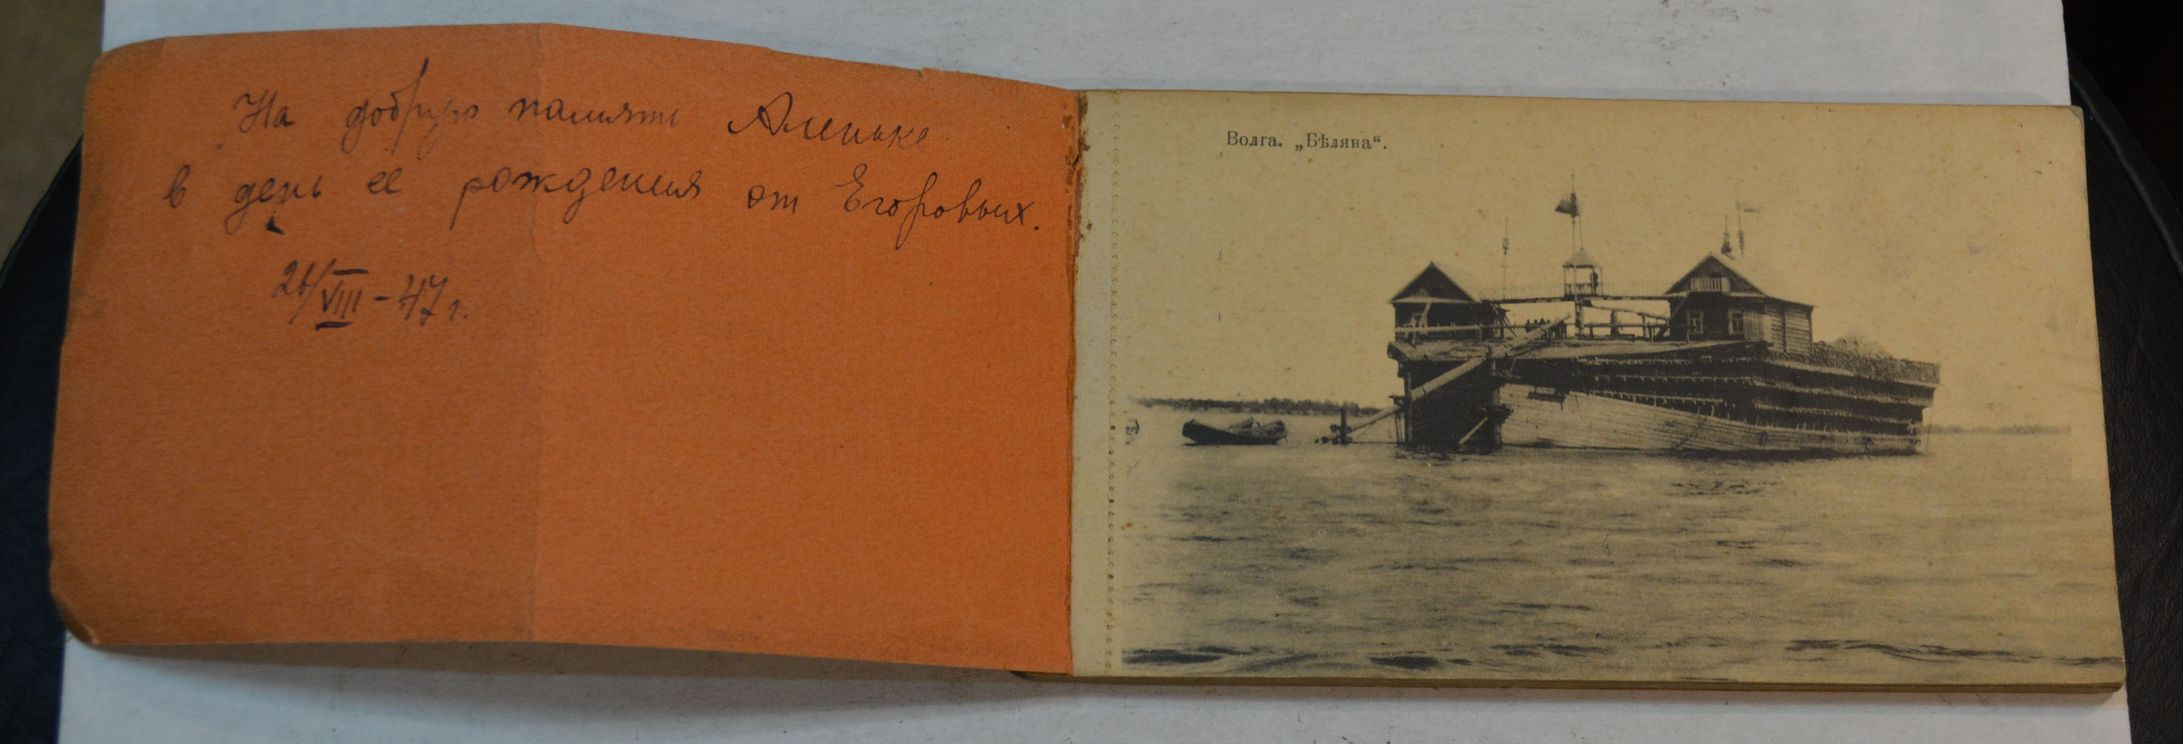 На добрую память Аленьке
в день ее рождения от Егоровых.
26/VIII - 47 г.
Волга. „Бѣляна“.